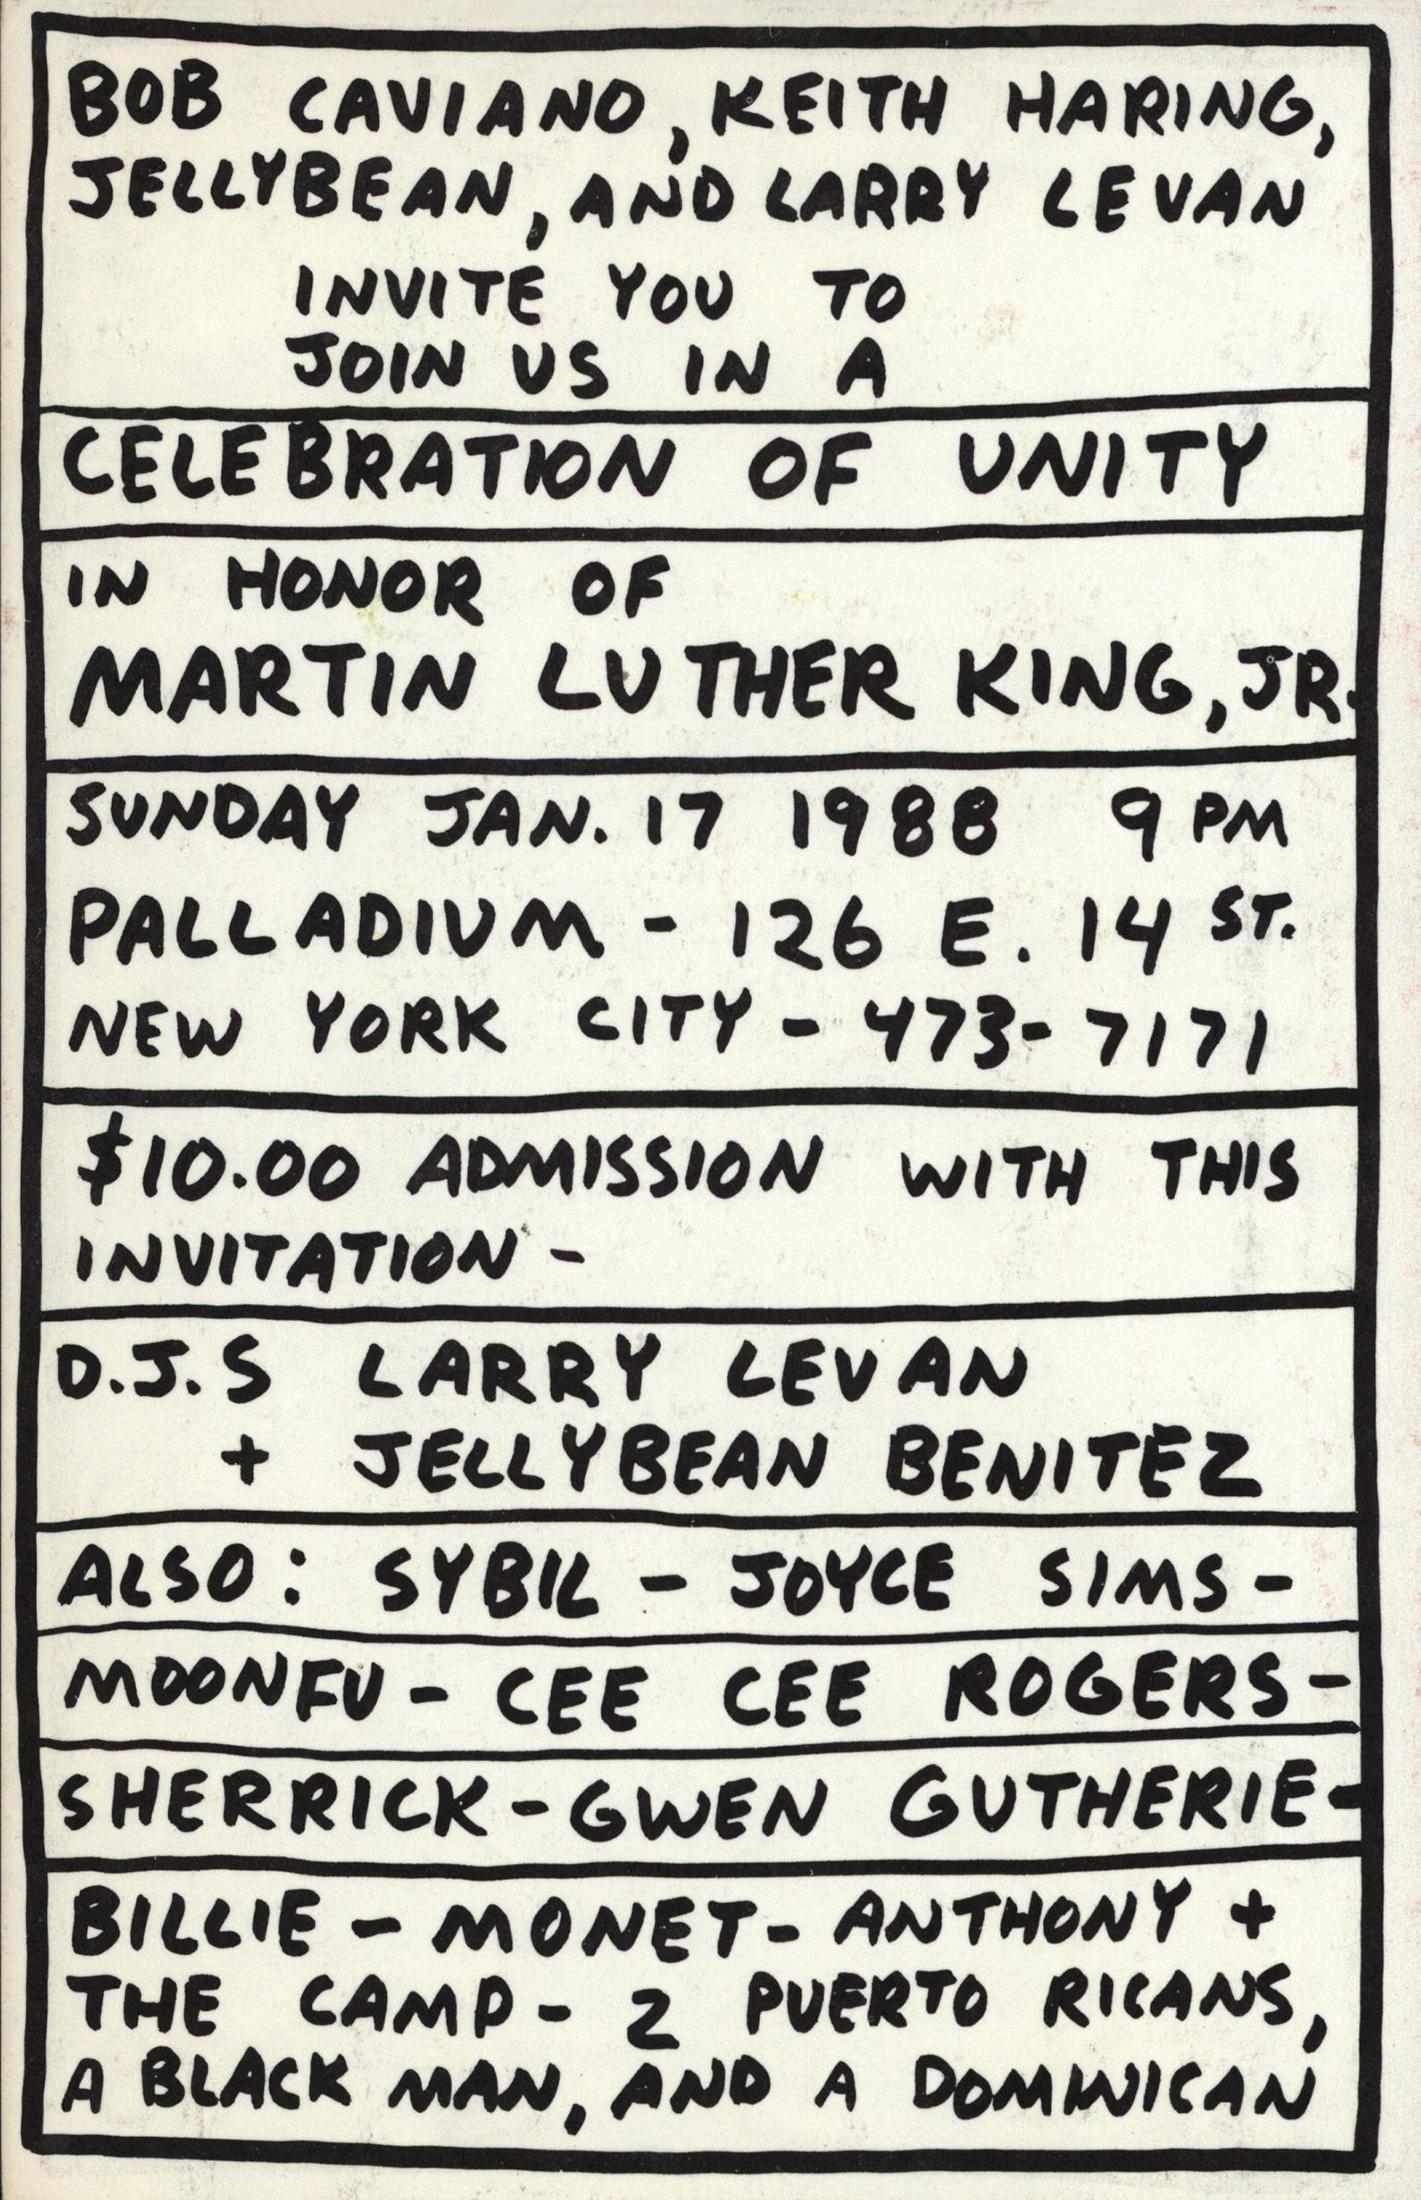 BOB CAVIANO, KEITH HARING,
JELLYBEAN, AND LARRY LEVAN
INVITE YOU TO
JOIN US IN A
CELEBRATION OF UNITY
IN HONOR OF
MARTIN LUTHER KING, JR.
SUNDAY JAN. 17 1988 9 PM
PALLADIUM - 126 E. 14 ST.
NEW YORK CITY - 473-7171
$10.00 ADMISSION WITH THIS
INVITATION -
D.J.S LARRY LEVAN
+ JELLYBEAN BENITEZ
ALSO: SYBIL - JOYCE SIMS -
MOONFU - CEE CEE ROGERS -
SHERRICK - GWEN GUTHERIE -
BILLIE - MONET - ANTHONY +
THE CAMP - 2 PUERTO RICANS,
A BLACK MAN, AND A DOMINICAN